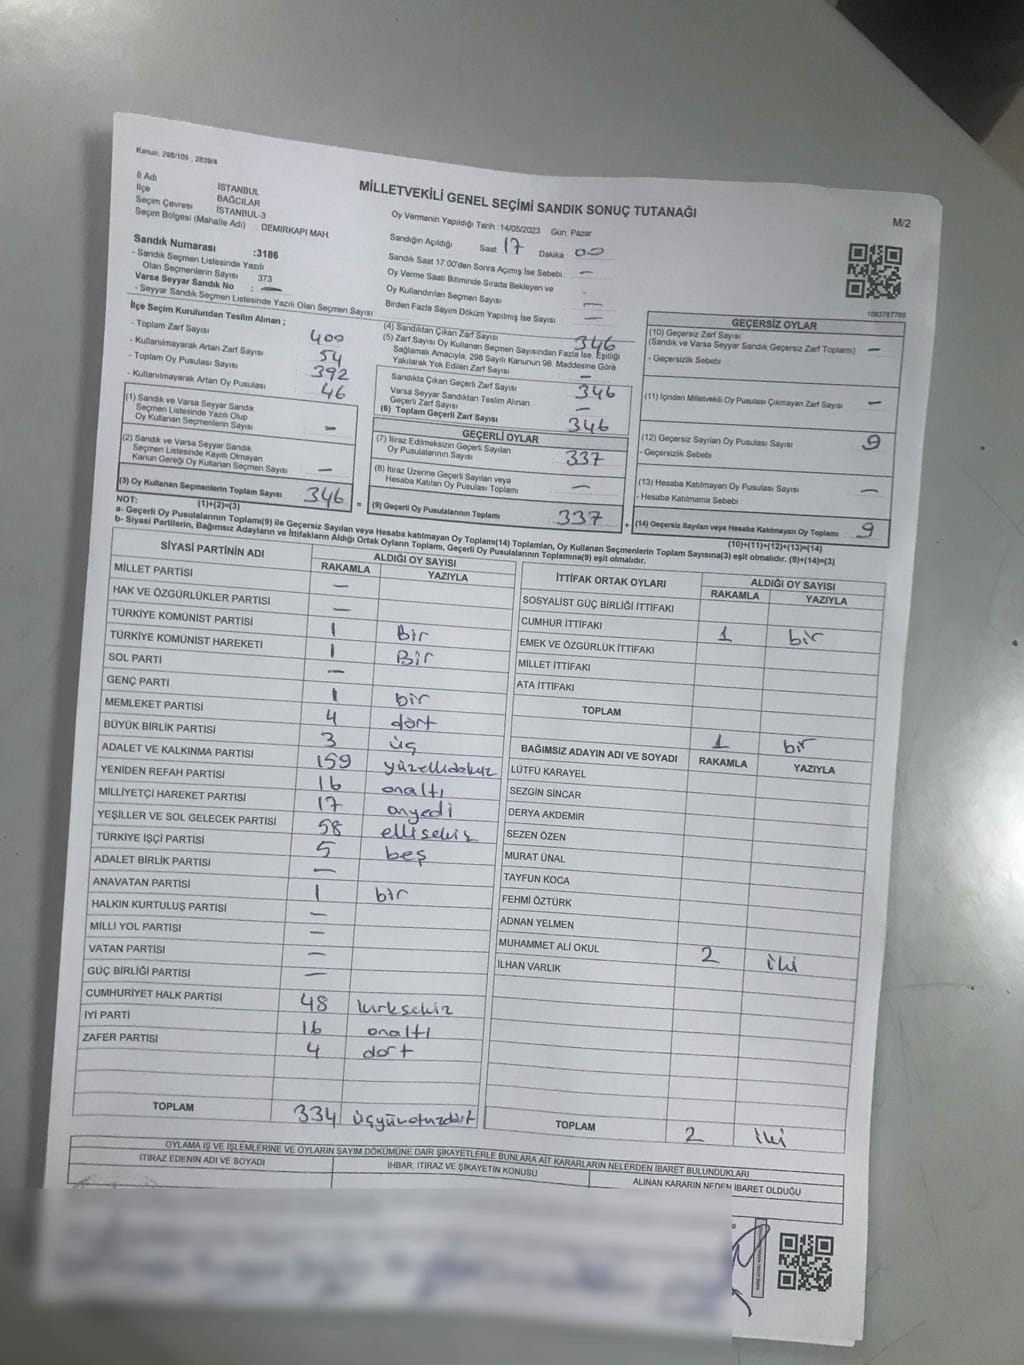 Kanun: 298/105 , 2839/4
MİLLETVEKİLİ GENEL SEÇİMİ SANDIK SONUÇ TUTANAĞI
M/2
İl Adı : İSTANBUL
İlçe : BAĞCILAR
Seçim Çevresi : İSTANBUL-3
Seçim Bölgesi (Mahalle Adı) : DEMİRKAPI MAH.
Sandık Numarası :3186
- Sandık Seçmen Listesinde Yazılı
Olan Seçmenlerin Sayısı : 373
Varsa Seyyar Sandık No : —
- Seyyar Sandık Seçmen Listesinde Yazılı Olan Seçmen Sayısı
Oy Vermenin Yapıldığı Tarih : 14/05/2023 Gün: Pazar
Sandığın Açıldığı Saat 17 Dakika 00
Sandık Saat 17:00'den Sonra Açılmış İse Sebebi —
Oy Verme Saati Bitiminde Sırada Bekleyen ve
Oy Kullandırılan Seçmen Sayısı —
Birden Fazla Sayım Döküm Yapılmış İse Sayısı —
1083787760
İlçe Seçim Kurulundan Teslim Alınan ;
- Toplam Zarf Sayısı : 400
- Kullanılmayarak Artan Zarf Sayısı : 54
- Toplam Oy Pusulası Sayısı : 392
- Kullanılmayarak Artan Oy Pusulası : 46
(1) Sandık ve Varsa Seyyar Sandık
Seçmen Listesinde Yazılı Olup
Oy Kullanan Seçmenlerin Sayısı —
(2) Sandık ve Varsa Seyyar Sandık
Seçmen Listesinde Kayıtlı Olmayan
Kanun Gereği Oy Kullanan Seçmen Sayısı —
(3) Oy Kullanan Seçmenlerin Toplam Sayısı 346
(1)+(2)=(3)
(4) Sandıktan Çıkan Zarf Sayısı 346
(5) Zarf Sayısı Oy Kullanan Seçmen Sayısından Fazla İse, Eşitliği
Sağlamak Amacıyla, 298 Sayılı Kanunun 98. Maddesine Göre
Yakılarak Yok Edilen Zarf Sayısı —
Sandıkta Çıkan Geçerli Zarf Sayısı 346
Varsa Seyyar Sandıktan Teslim Alınan
Geçerli Zarf Sayısı —
(6) Toplam Geçerli Zarf Sayısı 346
GEÇERLİ OYLAR
(7) İtiraz Edilmeksizin Geçerli Sayılan
Oy Pusulalarının Sayısı 337
(8) İtiraz Üzerine Geçerli Sayılan veya
Hesaba Katılan Oy Pusulası Toplamı —
= (9) Geçerli Oy Pusulalarının Toplamı 337 +
GEÇERSİZ OYLAR
(10) Geçersiz Zarf Sayısı
(Sandık ve Varsa Seyyar Sandık Geçersiz Zarf Toplamı) —
- Geçersizlik Sebebi :
(11) İçinden Milletvekili Oy Pusulası Çıkmayan Zarf Sayısı —
(12) Geçersiz Sayılan Oy Pusulası Sayısı 9
- Geçersizlik Sebebi :
(13) Hesaba Katılmayan Oy Pusulası Sayısı —
- Hesaba Katılmama Sebebi :
(14) Geçersiz Sayılan veya Hesaba Katılmayan Oy Toplamı 9
(10)+(11)+(12)+(13)=(14)
NOT:
a- Geçerli Oy Pusulalarının Toplamı(9) ile Geçersiz Sayılan veya Hesaba Katılmayan Oy Toplamı(14) Toplamları, Oy Kullanan Seçmenlerin Toplam Sayısına(3) eşit olmalıdır. (9)+(14)=(3)
b- Siyasi Partilerin, Bağımsız Adayların ve İttifakların Aldığı Ortak Oyların Toplamı, Geçerli Oy Pusulalarının Toplamına(9) eşit olmalıdır.
SİYASİ PARTİNİN ADI ALDIĞI OY SAYISI
RAKAMLA YAZIYLA
MİLLET PARTİSİ —
HAK VE ÖZGÜRLÜKLER PARTİSİ —
TÜRKİYE KOMÜNİST PARTİSİ 1 Bir
TÜRKİYE KOMÜNİST HAREKETİ 1 Bir
SOL PARTİ —
GENÇ PARTİ 1 bir
MEMLEKET PARTİSİ 4 dört
BÜYÜK BİRLİK PARTİSİ 3 üç
ADALET VE KALKINMA PARTİSİ 159 yüzellidokuz
YENİDEN REFAH PARTİSİ 16 onaltı
MİLLİYETÇİ HAREKET PARTİSİ 17 onyedi
YEŞİLLER VE SOL GELECEK PARTİSİ 58 ellisekiz
TÜRKİYE İŞÇİ PARTİSİ 5 beş
ADALET BİRLİK PARTİSİ —
ANAVATAN PARTİSİ 1 bir
HALKIN KURTULUŞ PARTİSİ —
MİLLİ YOL PARTİSİ —
VATAN PARTİSİ —
GÜÇ BİRLİĞİ PARTİSİ —
CUMHURİYET HALK PARTİSİ 48 kırksekiz
İYİ PARTİ 16 onaltı
ZAFER PARTİSİ 4 dört
TOPLAM 334 üçyüzotuzdört
İTTİFAK ORTAK OYLARI ALDIĞI OY SAYISI
RAKAMLA YAZIYLA
SOSYALİST GÜÇ BİRLİĞİ İTTİFAKI
CUMHUR İTTİFAKI 1 bir
EMEK VE ÖZGÜRLÜK İTTİFAKI
MİLLET İTTİFAKI
ATA İTTİFAKI
TOPLAM 1 bir
BAĞIMSIZ ADAYIN ADI VE SOYADI RAKAMLA YAZIYLA
LÜTFÜ KARAYEL
SEZGİN SİNCAR
DERYA AKDEMİR
SEZEN ÖZEN
MURAT ÜNAL
TAYFUN KOCA
FEHMİ ÖZTÜRK
ADNAN YELMEN
MUHAMMET ALİ OKUL 2 iki
İLHAN VARLIK
TOPLAM 2 iki
OYLAMA İŞ VE İŞLEMLERİNE VE OYLARIN SAYIM DÖKÜMÜNE DAİR ŞİKAYETLERLE BUNLARA AİT KARARLARIN NELERDEN İBARET BULUNDUKLARI
İTİRAZ EDENİN ADI VE SOYADI İHBAR, İTİRAZ VE ŞİKAYETİN KONUSU ALINAN KARARIN NEDEN İBARET OLDUĞU